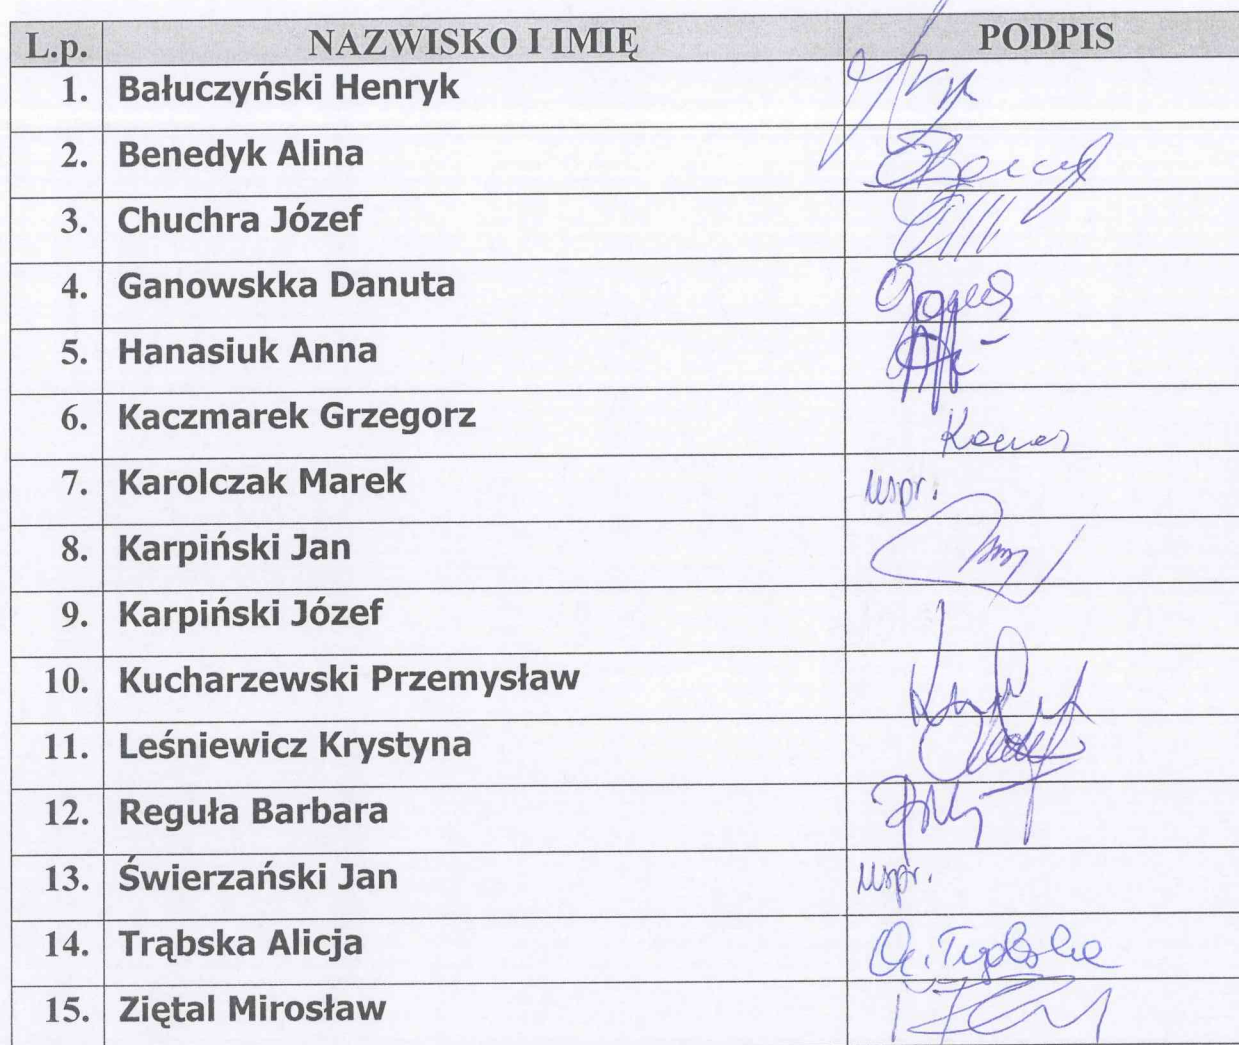 L.p. NAZWISKO I IMIĘ PODPIS
1. Bałuczyński Henryk
2. Benedyk Alina
3. Chuchra Józef
4. Ganowskka Danuta
5. Hanasiuk Anna
6. Kaczmarek Grzegorz
7. Karolczak Marek uspr.
8. Karpiński Jan
9. Karpiński Józef
10. Kucharzewski Przemysław
11. Leśniewicz Krystyna
12. Reguła Barbara
13. Świerzański Jan uspr.
14. Trąbska Alicja A. Trąbska
15. Ziętal Mirosław